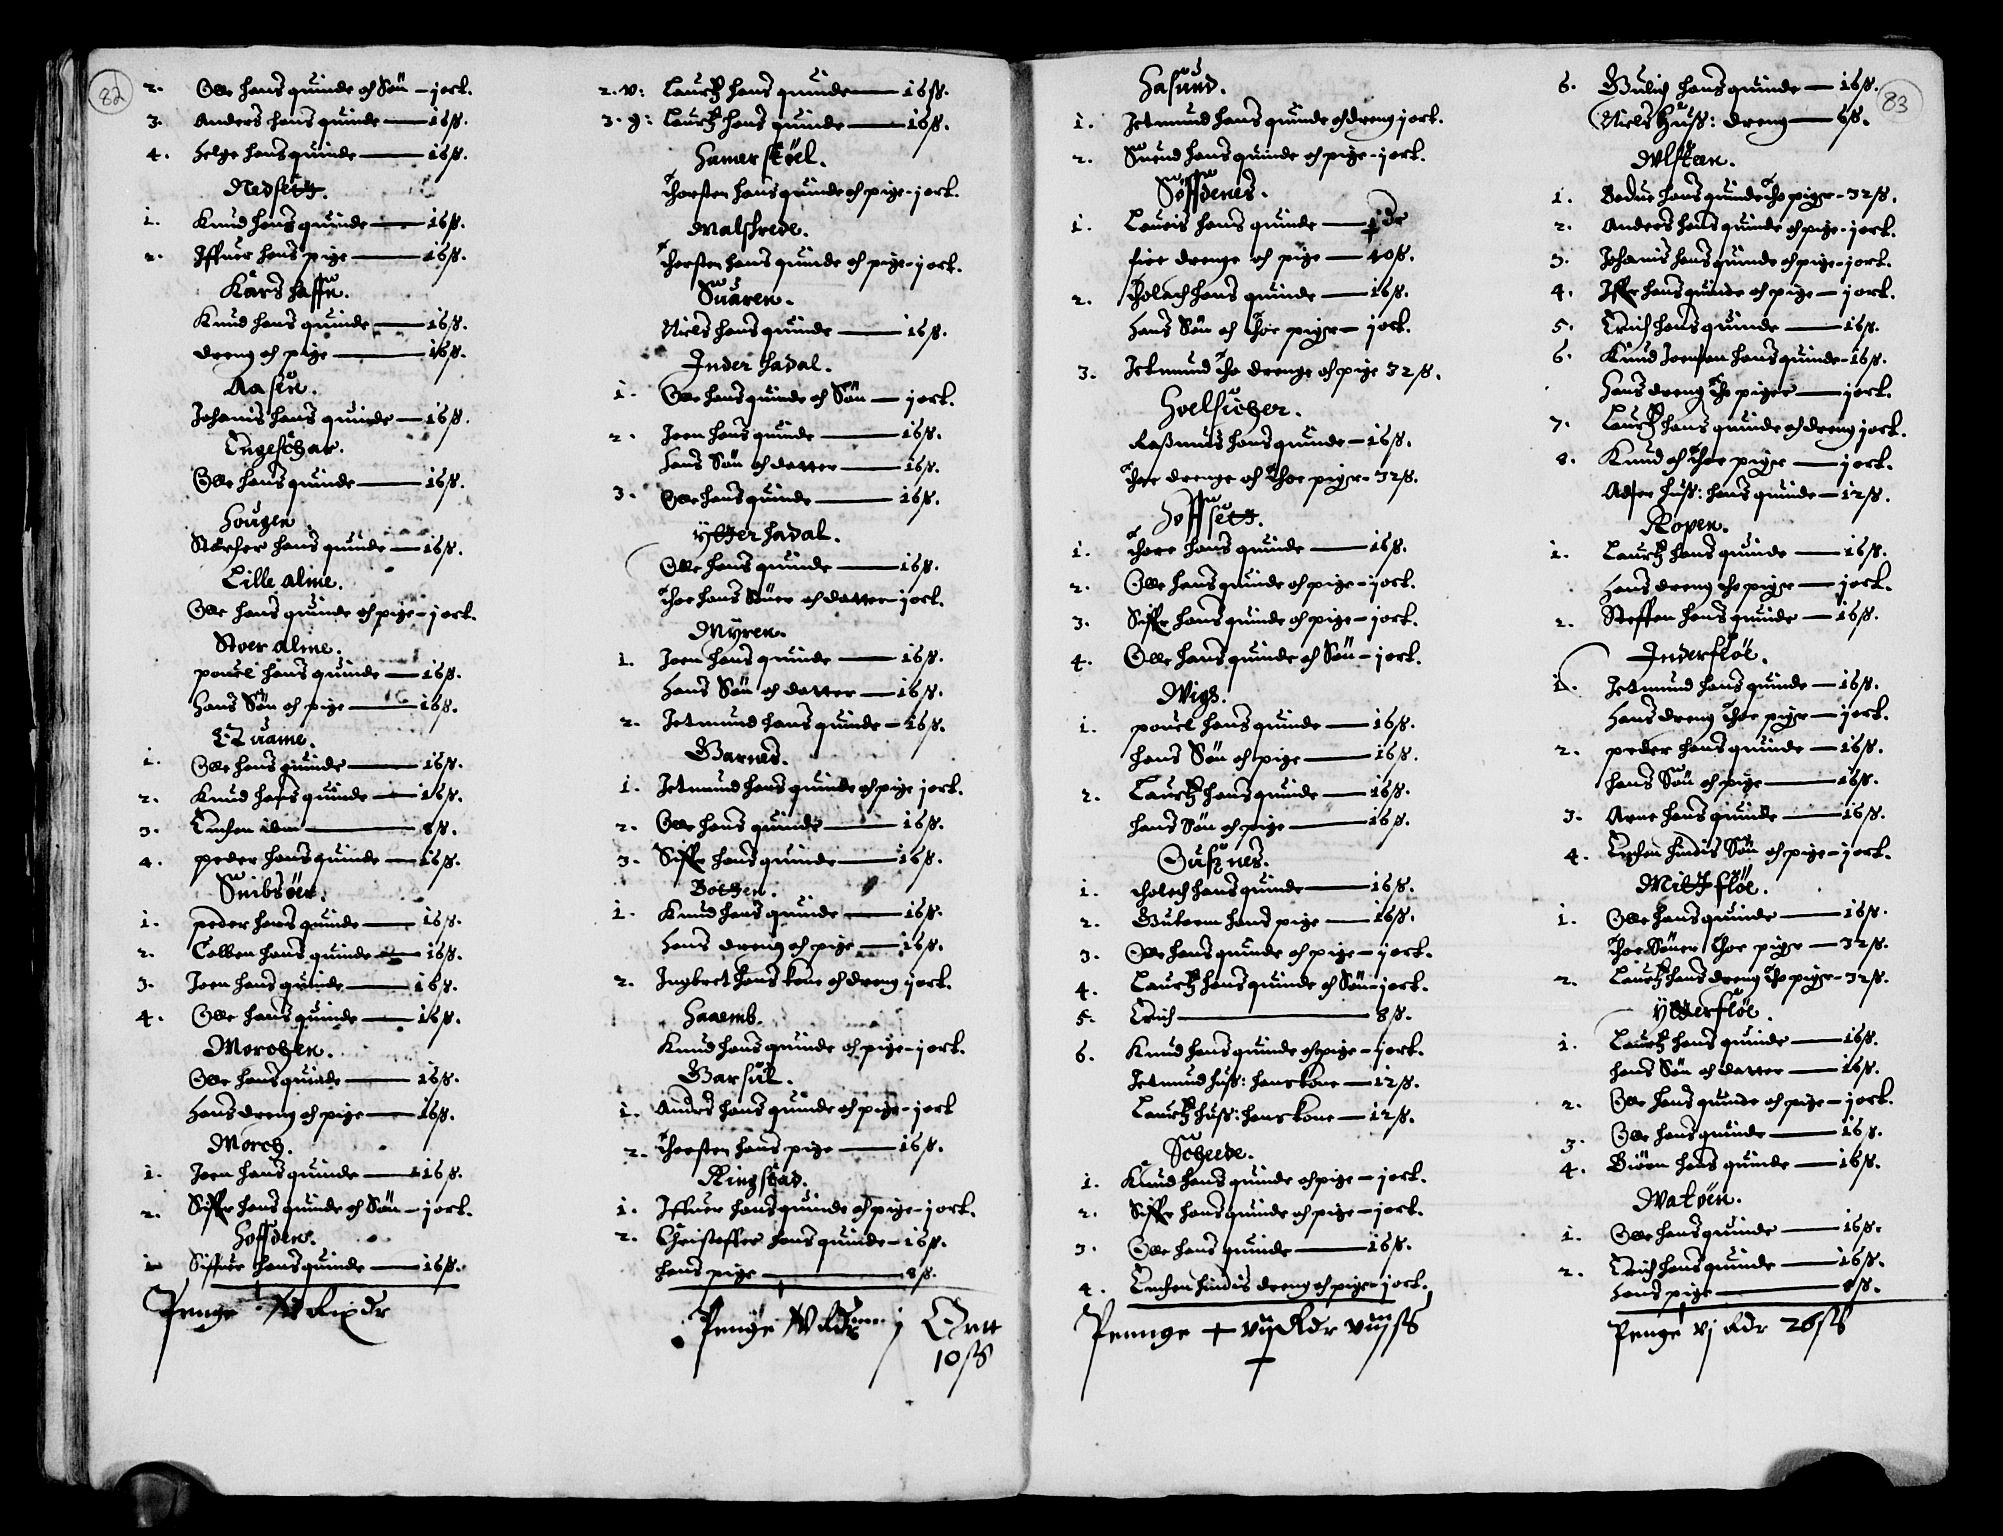 82
2. Olle hans quinde och Sön - j ort.
3. Anders hans quinde — 16 ß.
4. Helge hans quinde — 16 ß.
Nedsett.
1. Knud hans quinde — 16 ß.
2. Iffuer hans pige — 16 ß.
Kårs haffn.
Knud hans quinde — 16 ß.
dreng och pige — 16 ß.
Aasen.
Johanis hans quinde — 16 ß.
Engeschar.
Olle hans quinde — 16 ß.
Hougen.
Stercher hans quinde — 16 ß.
Lille alme.
Olle hans quinde och pige - j ort.
Stoer alme.
pouel hans quinde — 16 ß.
Hans Sön och pige — 16 ß.
Tuame.
1. Olle hans quinde — 16 ß.
2. Knud hans quinde — 16 ß.
3. Enchen ibm — 8 ß.
4. peder hans quinde — 16 ß.
Snibsöer.
1. peder hans quinde — 16 ß.
2. Colben hans quinde — 16 ß.
3. Joen hans quinde — 16 ß.
4. Olle hans quinde — 16 ß.
Morchen.
Olle hans quinde — 16 ß.
Hans dreng och pige — 16 ß.
Morch.
1. Joen hans quinde — 16 ß.
2. Siffr hans quinde och Sön - j ort.
Hoffden.
1 Siffuer hans quinde — 16 ß.
Penge
2. v: Lauritz hans quinde — 16 ß.
3. y: Lauritz hans quinde — 16 ß.
Hamerstöel.
Thorsten hans quinde och pige - j ort.
Walskrede.
Thorsten hans quinde och pige - j ort.
Suåren.
Niels hans quinde — 16 ß.
Inder hadal.
1. Olle hans quinde och Sön — j ort.
2. Joen hans quinde — 16 ß.
Hans Sön och datter — 16 ß.
3. Olle hans quinde — 16 ß.
ytter hadal.
Olle hans quinde — 16 ß.
Thoe hans Söner och datter - j ort.
Myren.
1. Joen hans quinde — 16 ß.
Hans Sön och datter — 16 ß.
2. Jetmund hans quinde - 16 ß.
Barnes.
1. Jetmund hans quinde och pige j ort.
2. Olle hans quinde — 16 ß.
3. Siffr hans quinde — 16 ß.
Bothen.
1. Knud hans quinde — 16 ß.
Hans dreng och pige — 16 ß.
2. Ingbret hans kone och dreng j ort.
Haaemb.
Knud hans quinde och pige - j ort.
Barsul.
1. Anders hans quinde och pige - j ort
2. Thorsten hans pige — 16 ß.
Ringstad.
1. Iffuer hans quinde och pige - j ort.
2. Christoffer hans quinde - 16 ß.
hans pige — 8 ß.
Penge j Ortt
10 ß
83
Hasund.
1. Jetmund hans quinde och dreng j ort.
2. Suend hans quinde och pige - j ort.
Söffdenes.
1. Lauris hans quinde —
fire drenge och pige — 40 ß.
2. Tholach hans quinde — 16 ß.
Hans Sön och Thoe piger — j ort.
3. Jetmund Tho drenge och pige 32 ß.
Hoelsicher.
Rasmus hans quinde — 16 ß.
Thoe drenge och Thoe piger - 32 ß.
Hoffsett.
1. Thore hans quinde — 16 ß.
2. Olle hans quinde och pige - j ort.
3. Siffr hans quinde och pige - j ort.
4. Olle hans quinde och Sön - j ort.
Wigs.
1. pouel hans quinde — 16 ß.
hans Sön och pige — 16 ß.
2. Lauritz hans quinde — 16 ß.
hans Sön och pige — 16 ß.
Gusznes.
1. Tholech hans quinde — 16 ß.
2. Guttorm hans pige — 16 ß.
3. Olle hans quinde och pige - j ort.
4. Lauritz hans quinde och Sön - j ort.
5. Erich — 8 ß.
6. Knud hans quinde och pige - j ort.
Jetmund huß: hans kone — 12 ß.
Lauritz huß: hans kone — 12 ß.
Scheede.
1. Knud hans quinde och pige - j ort.
2. Siffr hans quinde och pige - j ort.
3. Olle hans quinde — 16 ß.
4. Enchen hindis dreng och pige - j ort.
Pennge + vij Rdr viij ß
6. Gulich hans quinde — 16 ß.
Niels Huß: dreng — 6 ß.
Wlsteen.
1. Bodue hans quinde Tho piger - 32 ß.
2. Anders hans quinde och pige - j ort.
3. Johanis hans quinde och pige - j ort.
4. Iffr hans quinde och pige — j ort.
5. Erich hans quinde — 16 ß.
6. Knud Joensen hans quinde - 16 ß.
Hans dreng Tho piger — j ort.
7. Lauritz hans quinde och dreng j ort.
8. Knud och Thoe piger — j ort.
Adser huß: hans quinde — 12 ß.
Roven.
1. Lauritz hans quinde — 16 ß.
Hans dreng tho piger — j ort.
2. Steffen hans quinde — 16 ß.
Inderflöe.
1. Jetmund hans quinde — 16 ß.
Hans dreng Thoe piger — j ort.
2. peder hans quinde — 16 ß.
hans Sön och pige — 16 ß.
3. Arne hans quinde — 16 ß.
4. Enchen hindis Sön och pige — j ort.
Mittflöe.
1. Olle hans quinde — 16 ß.
Thoe Söner Thoe piger — 32 ß.
2. Lauritz hans dreng Tho piger - 32 ß.
ytterflöe.
1. Lauritz hans quinde — 16 ß.
hans Sön och datter — 16 ß.
2. Olle hans quinde och pige — j ort.
3. Olle hans quinde — 16 ß.
4. Biörn hans quinde — 16 ß.
Watöen.
1. Olle hans quinde — 16 ß.
2. Erich hans quinde — 16 ß.
Hans pige — 8 ß.
Penge vj Rdr 26 ß